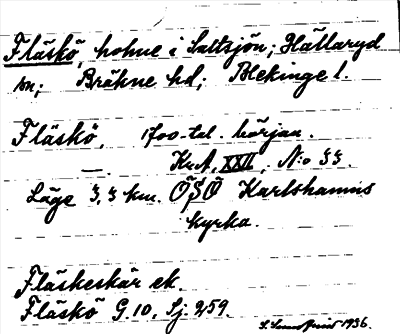 Fläskö, holme i Saltsjön; Hällaryd
sn; Bräkne hd; Blekinge l.
Fläskö, 1700-tal. början.
—. Kr.A. XXII, N:o 33.
Läge 3,3 km. ÖSÖ Karlshamns
kyrka.
Fläskeskär ek.
Fläskö G.10, Sj. 259.
1936.